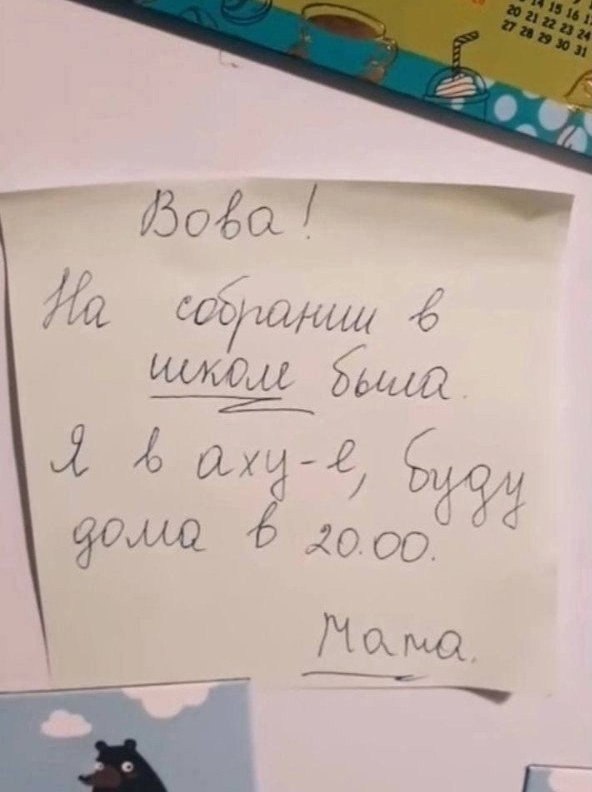 14 15 16 1
20 21 22 23 24
27 28 29 30 31
Вова!
На собрании в
школе была.
Я в аху-е, буду
дома в 20.00.
Мама.